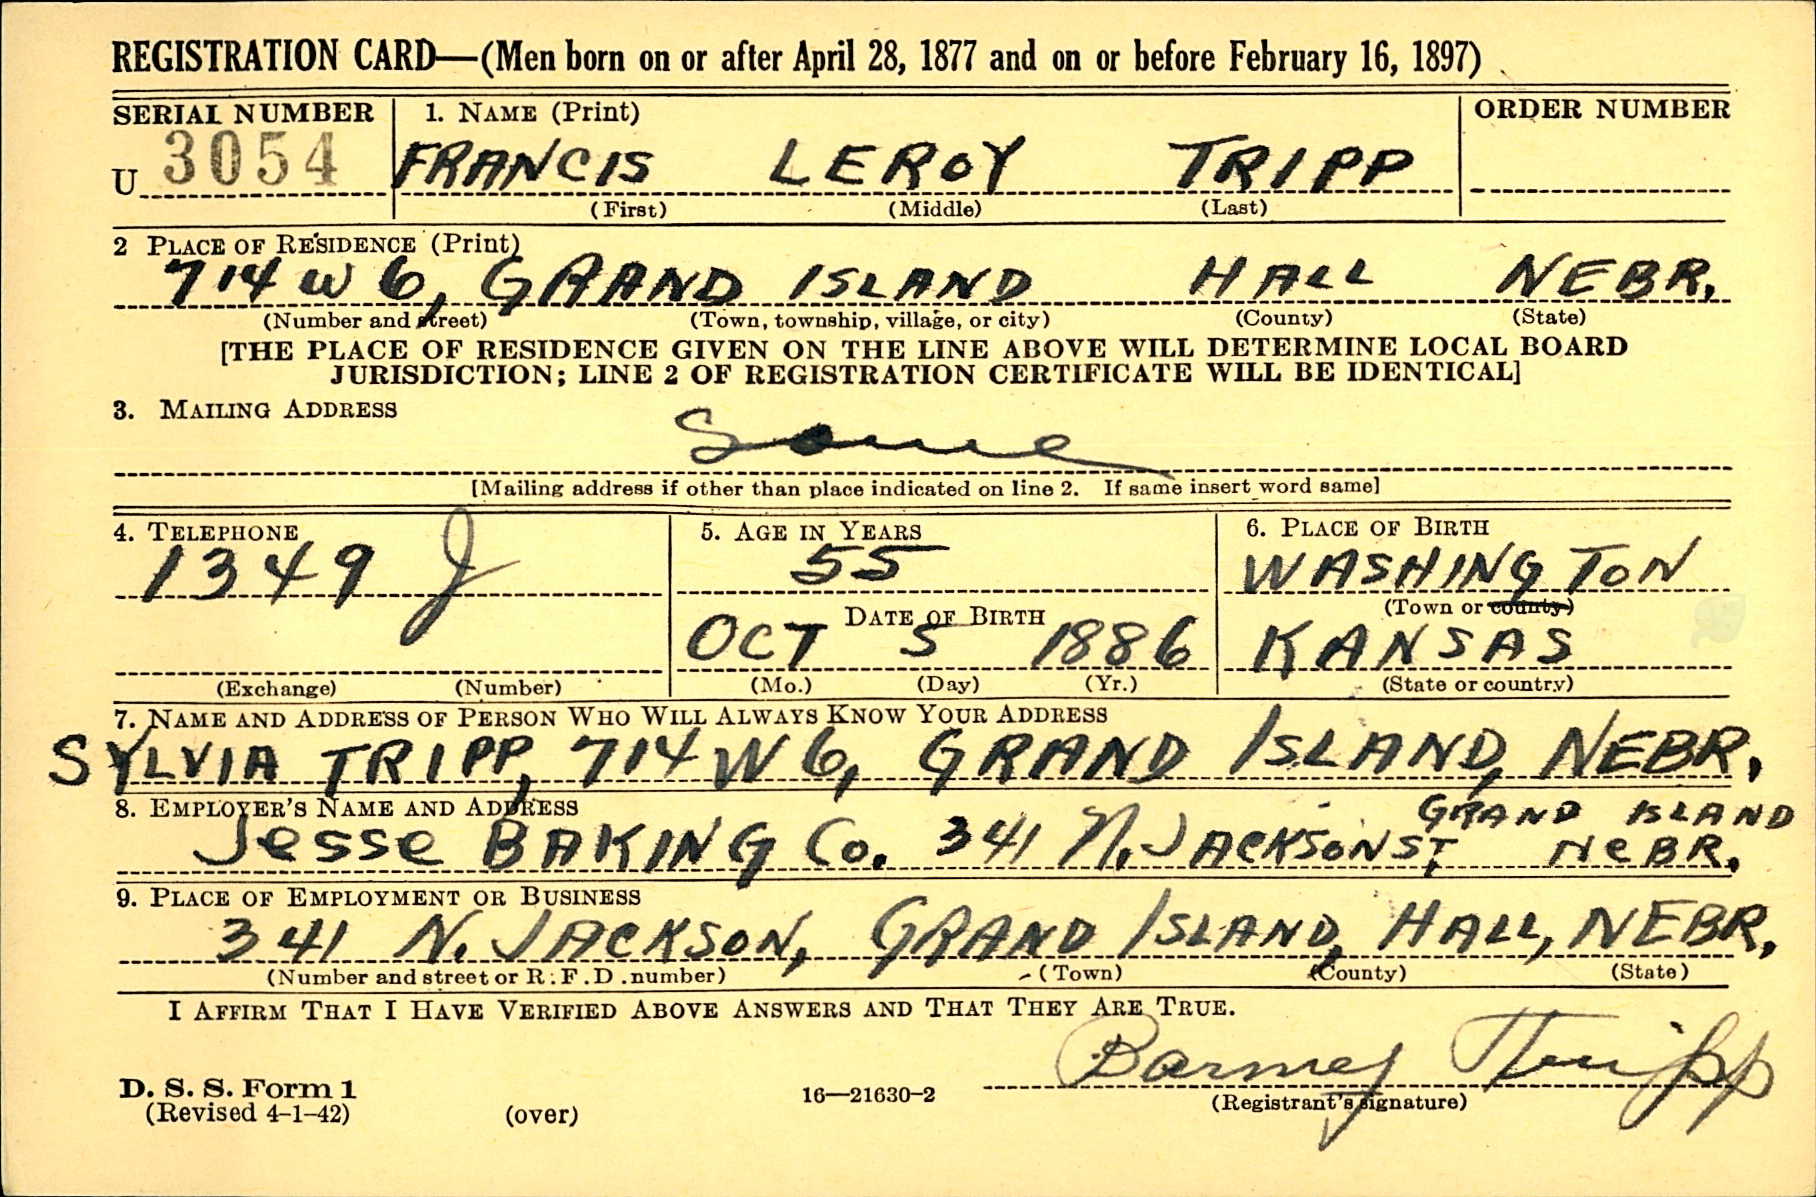 REGISTRATION CARD—(Men born on or after April 28, 1877 and on or before February 16, 1897)
SERIAL NUMBER 1. NAME (Print) ORDER NUMBER
U 3054 FRANCIS LEROY TRIPP
(First) (Middle) (Last)
2 PLACE OF RESIDENCE (Print)
714 W 6, GRAND ISLAND HALL NEBR.
(Number and street) (Town, township, village, or city) (County) (State)
[THE PLACE OF RESIDENCE GIVEN ON THE LINE ABOVE WILL DETERMINE LOCAL BOARD
JURISDICTION; LINE 2 OF REGISTRATION CERTIFICATE WILL BE IDENTICAL]
3. MAILING ADDRESS
Same
[Mailing address if other than place indicated on line 2. If same insert word same]
4. TELEPHONE 5. AGE IN YEARS 6. PLACE OF BIRTH
1349 J 55 WASHINGTON
(Town or county)
DATE OF BIRTH
OCT 5 1886 KANSAS
(Exchange) (Number) (Mo.) (Day) (Yr.) (State or country)
7. NAME AND ADDRESS OF PERSON WHO WILL ALWAYS KNOW YOUR ADDRESS
SYLVIA TRIPP, 714 W 6, GRAND ISLAND, NEBR.
8. EMPLOYER'S NAME AND ADDRESS
Jesse BAKING Co. 341 N. JACKSON ST. GRAND ISLAND NeBR.
9. PLACE OF EMPLOYMENT OR BUSINESS
341 N. JACKSON, GRAND ISLAND, HALL, NEBR.
(Number and street or R. F. D. number) (Town) (County) (State)
I AFFIRM THAT I HAVE VERIFIED ABOVE ANSWERS AND THAT THEY ARE TRUE.
Barney Tripp
D. S. S. Form 1
(Revised 4-1-42) (over) 16—21630-2 (Registrant's signature)